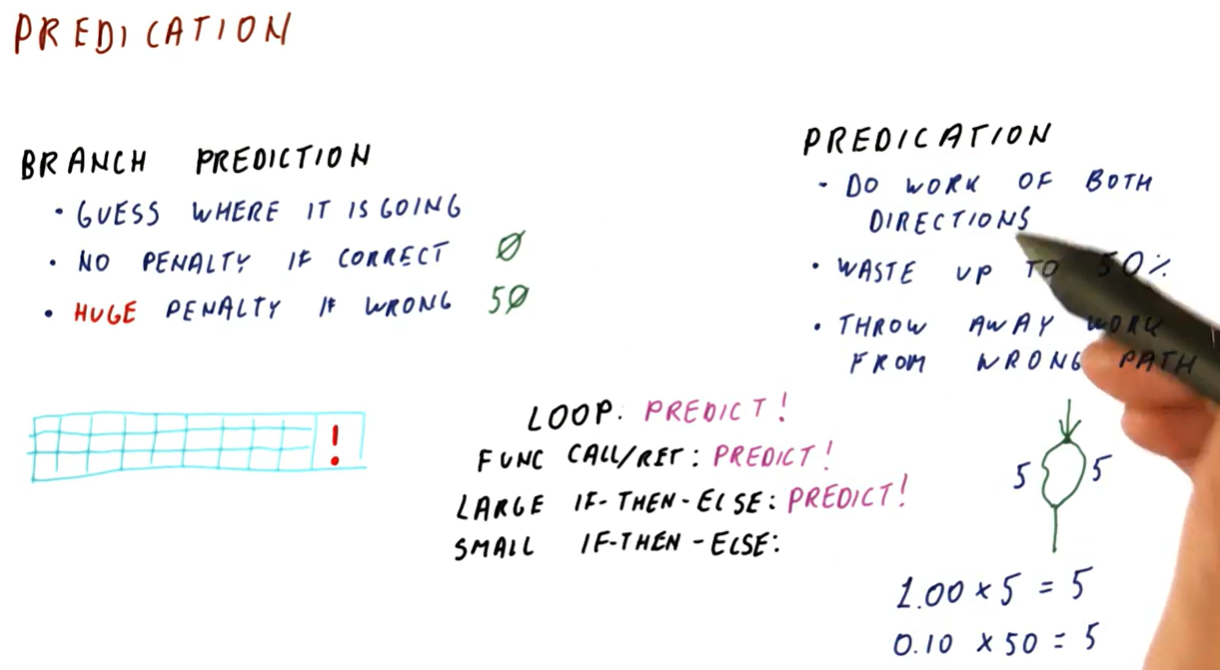 PREDICATION
BRANCH PREDICTION
• GUESS WHERE IT IS GOING
• NO PENALTY IF CORRECT 0
• HUGE PENALTY IF WRONG 50
!
PREDICATION
- DO WORK OF BOTH
DIRECTIONS
• WASTE UP TO 50%
• THROW AWAY WORK
FROM WRONG PATH
LOOP: PREDICT!
FUNC CALL/RET: PREDICT!
LARGE IF-THEN-ELSE: PREDICT!
SMALL IF-THEN-ELSE:
5 5
1.00 x 5 = 5
0.10 x 50 = 5